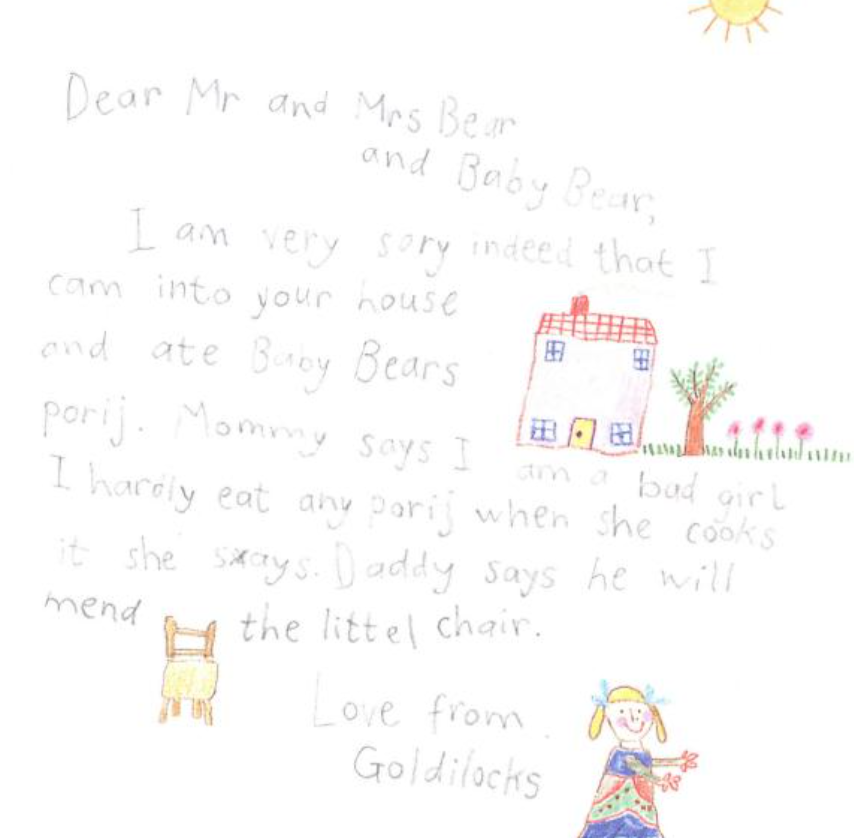 Dear Mr and Mrs Bear
and Baby Bear,
I am very sory indeed that I
cam into your house
and ate Baby Bears
porij. Mommy says I am a bad girl
I hardly eat any porij when she cooks
it she sxays. Daddy says he will
mend the littel chair.
Love from
Goldilocks